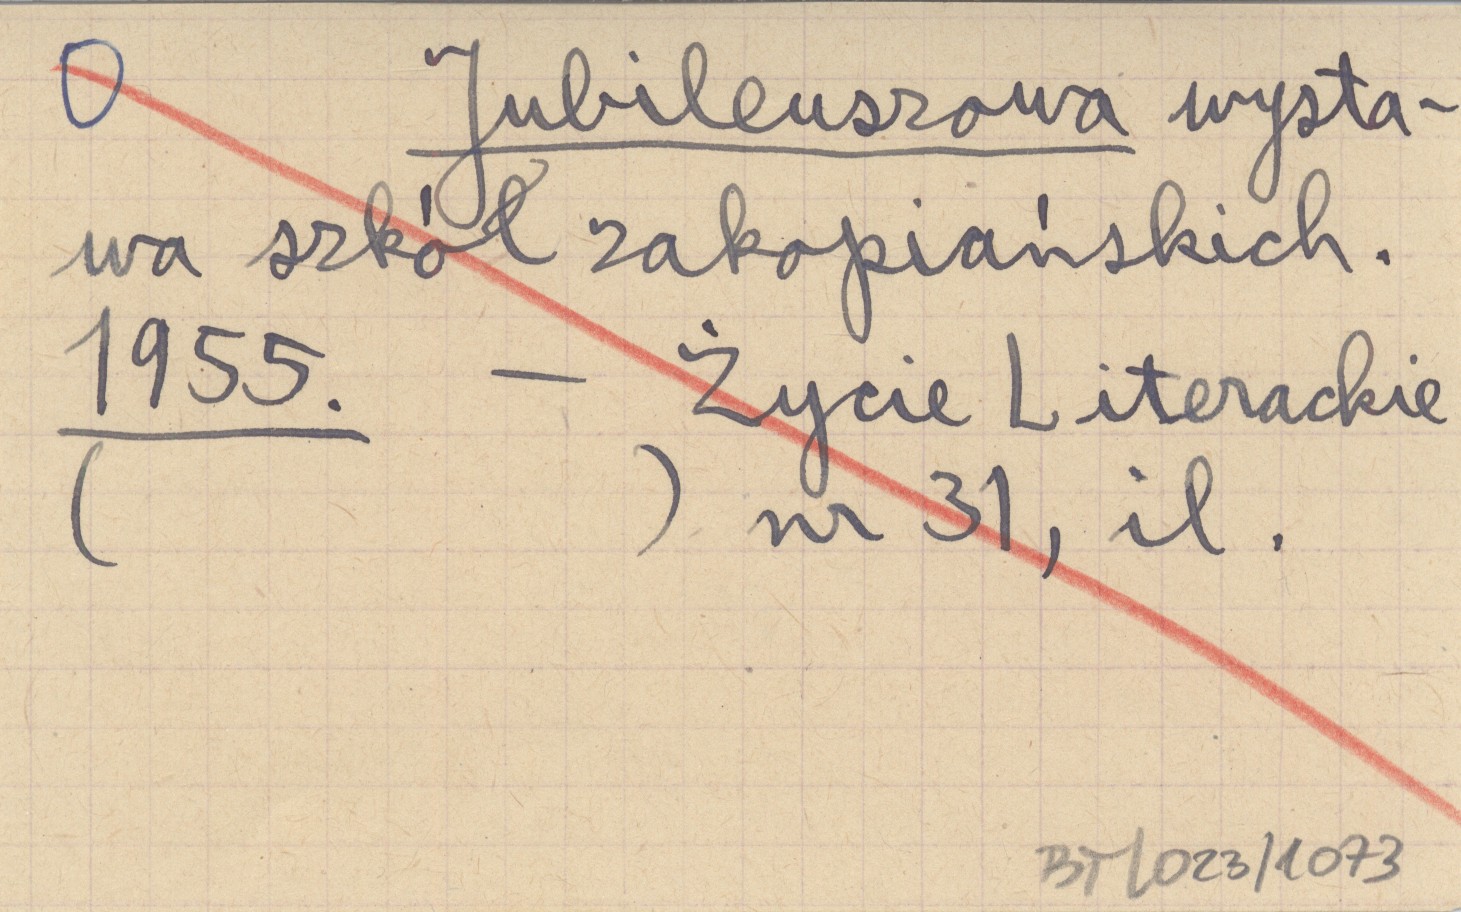 O Jubileuszowa wysta-
wa szkół zakopiańskich.
1955. — Życie Literackie
( ) nr 31, il.
BT/023/1073